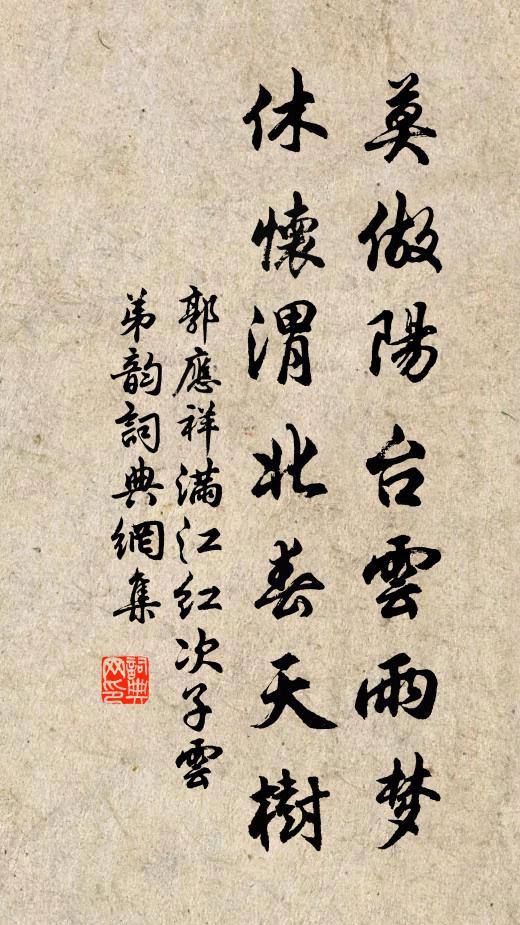 莫做陽台雲雨梦
休懷渭北春天樹
郭應祥满江红次子雲
弟韵詞典網集
詞典网印